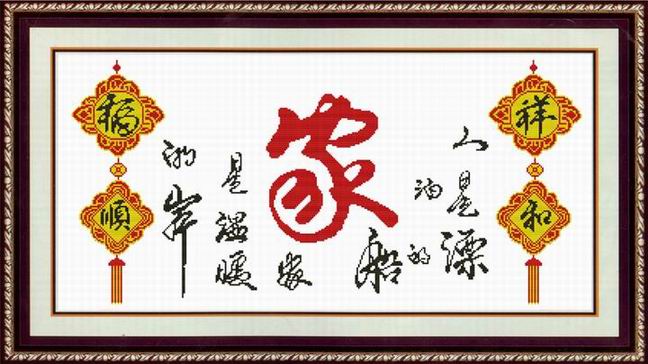 祥和
人是漂
泊的船
家
家是温暖
的岸
福順